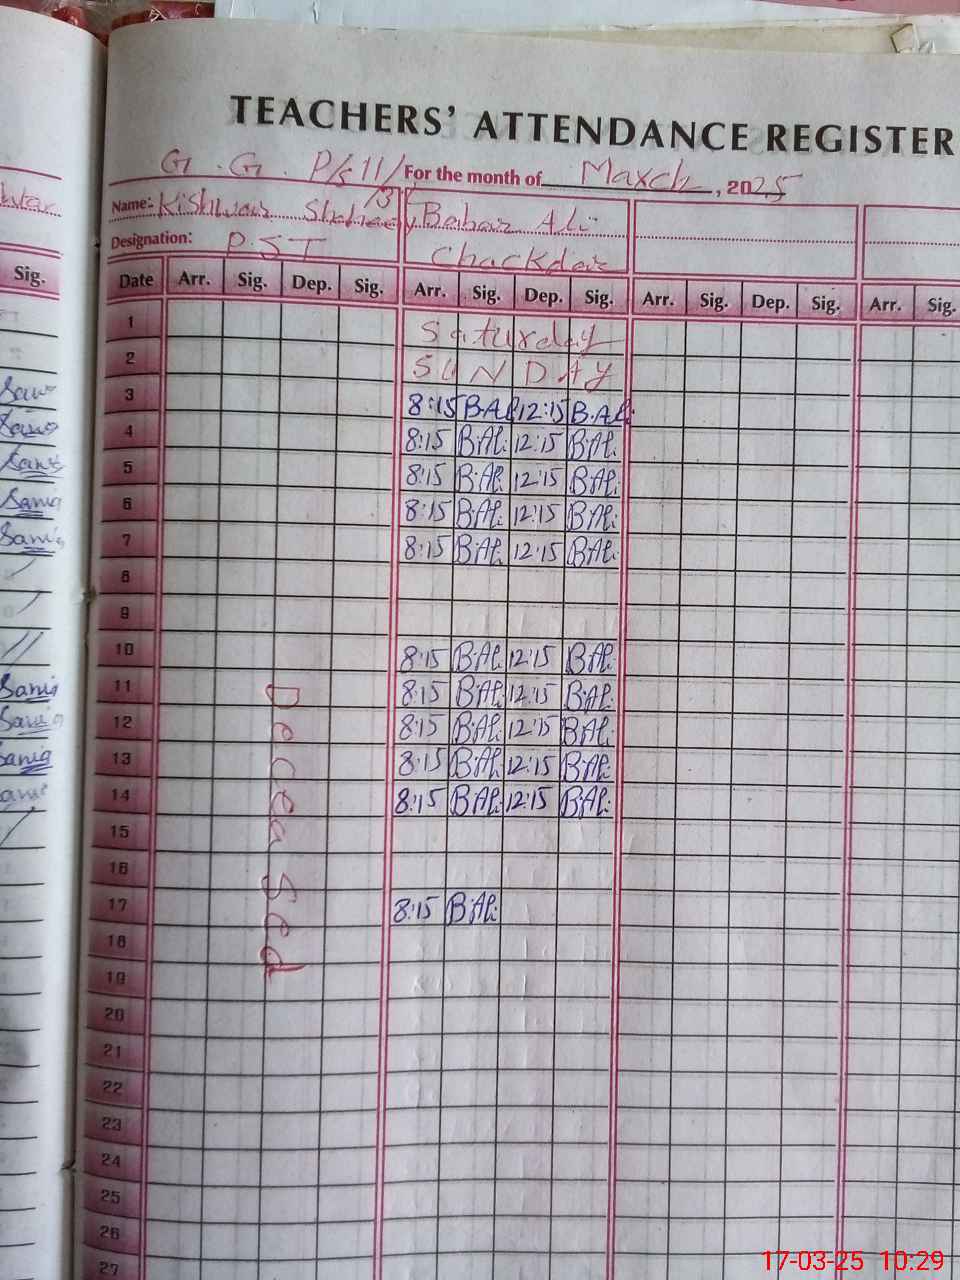 TEACHERS' ATTENDANCE REGISTER
G.G. P/S 11/ For the month of March, 2025
Name: Kishwar Babar Ali
Designation: P.S.T Chockdar
Sig. Date Arr. Sig. Dep. Sig. Arr. Sig. Dep. Sig. Arr. Sig. Dep. Sig. Arr. Sig.
1 Saturday
2 SUNDAY
3 8:15 B.Ali 12:15 B.Ali
4 8:15 B.Ali 12:15 B.Ali
5 8:15 B.Ali 12:15 B.Ali
6 8:15 B.Ali 12:15 B.Ali
7 8:15 B.Ali 12:15 B.Ali
8
9
10 8:15 B.Ali 12:15 B.Ali
11 8:15 B.Ali 12:15 B.Ali
12 8:15 B.Ali 12:15 B.Ali
13 8:15 B.Ali 12:15 B.Ali
14 8:15 B.Ali 12:15 B.Ali
15
16
17 8:15 B.Ali
18
19
20
21
22
23
24
25
26
27
Deceased
17-03-25 10:29